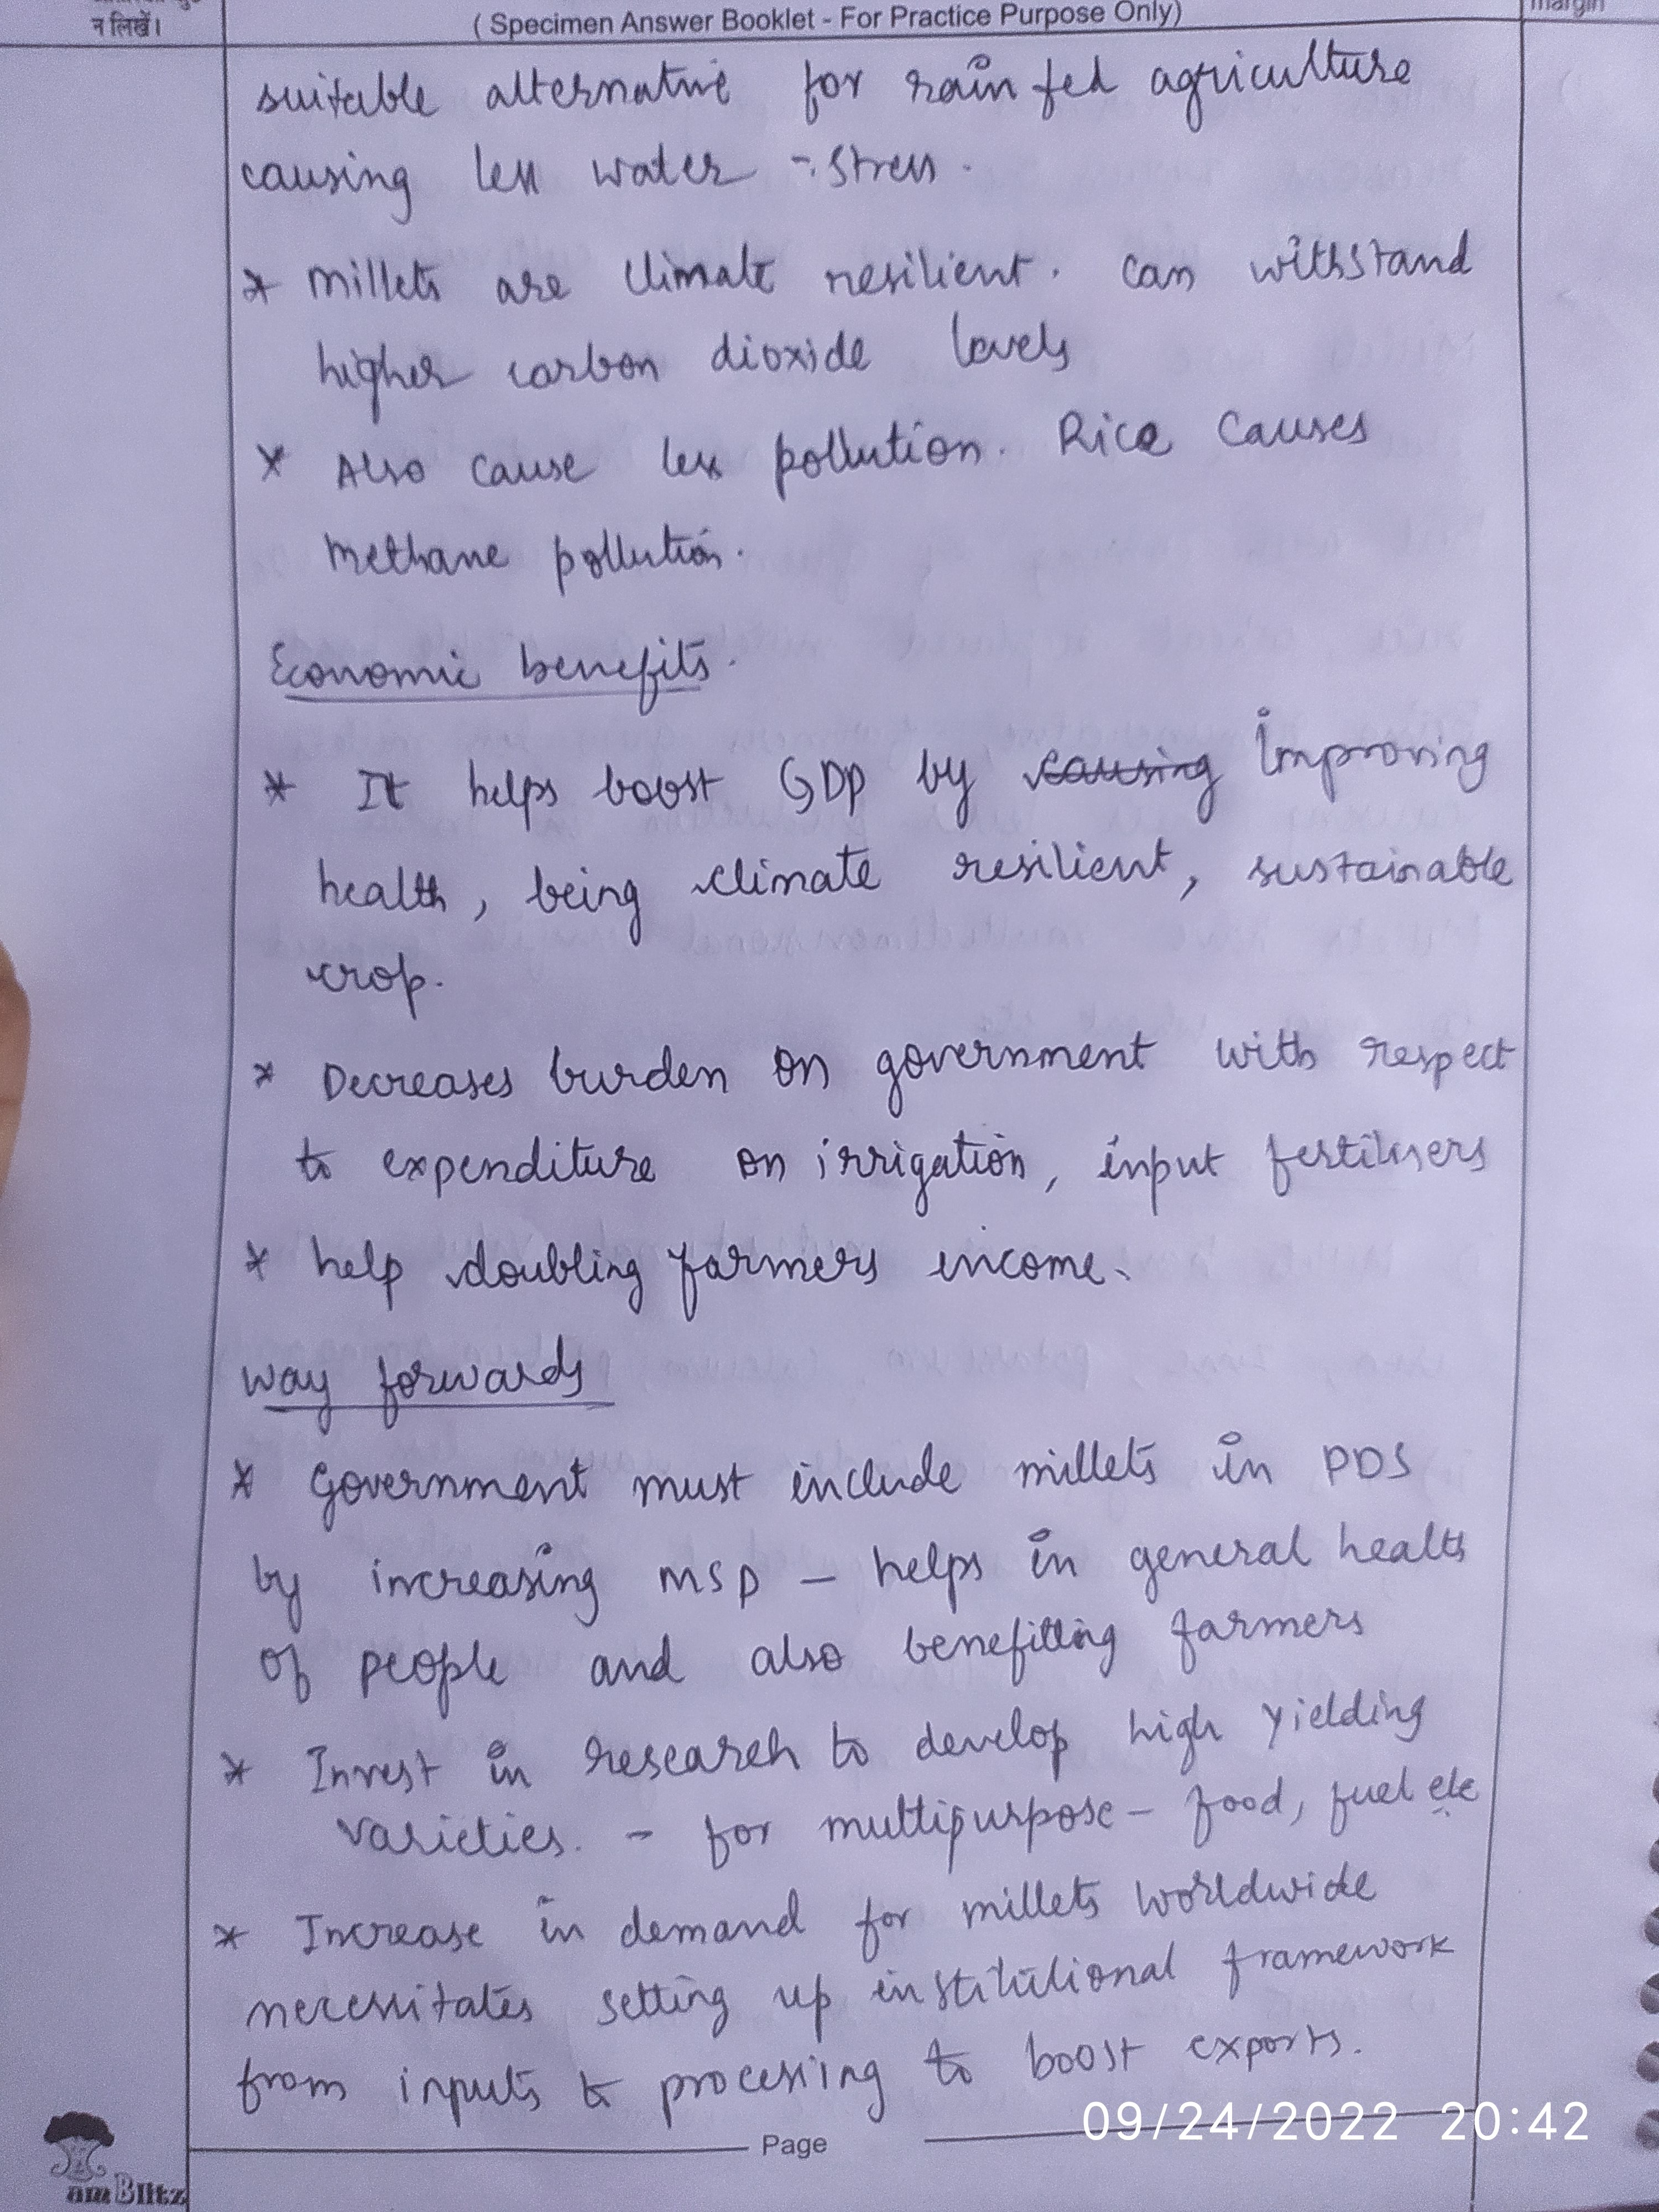 न लिखें।
( Specimen Answer Booklet - For Practice Purpose Only)
margin
suitable alternative for rain fed agriculture
causing less water - stress.
* Millets are climate resilient. Can withstand
higher carbon dioxide levels
* Also cause less pollution. Rice causes
Methane pollution.
Economic benefits.
* It helps boost GDP by causing improving
health, being climate resilient, sustainable
crop.
* Decreases burden on government with respect
to expenditure on irrigation, input fertilisers
* help doubling farmers income.
Way forwards
* Government must include millets in PDS
by increasing MSP – helps in general health
of people and also benefitting farmers
* Invest in research to develop high yielding
varieties. – for multipurpose – food, fuel etc
* Increase in demand for millets worldwide
necessitates setting up institutional framework
from inputs to processing to boost exports.
09/24/2022 20:42
Page
am Blitz